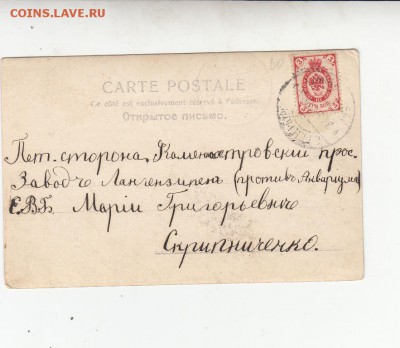 COINS.LAVE.RU
CARTE POSTALE
Ce côté est exclusivement réservé à l'adresse.
Открытое письмо.
Пет. сторона. Каменоостровский прос.
Заводъ Лангензипенъ (противъ Акваріума)
Е.В.Б. Маріи Григорьевнѣ
Скрипниченко.